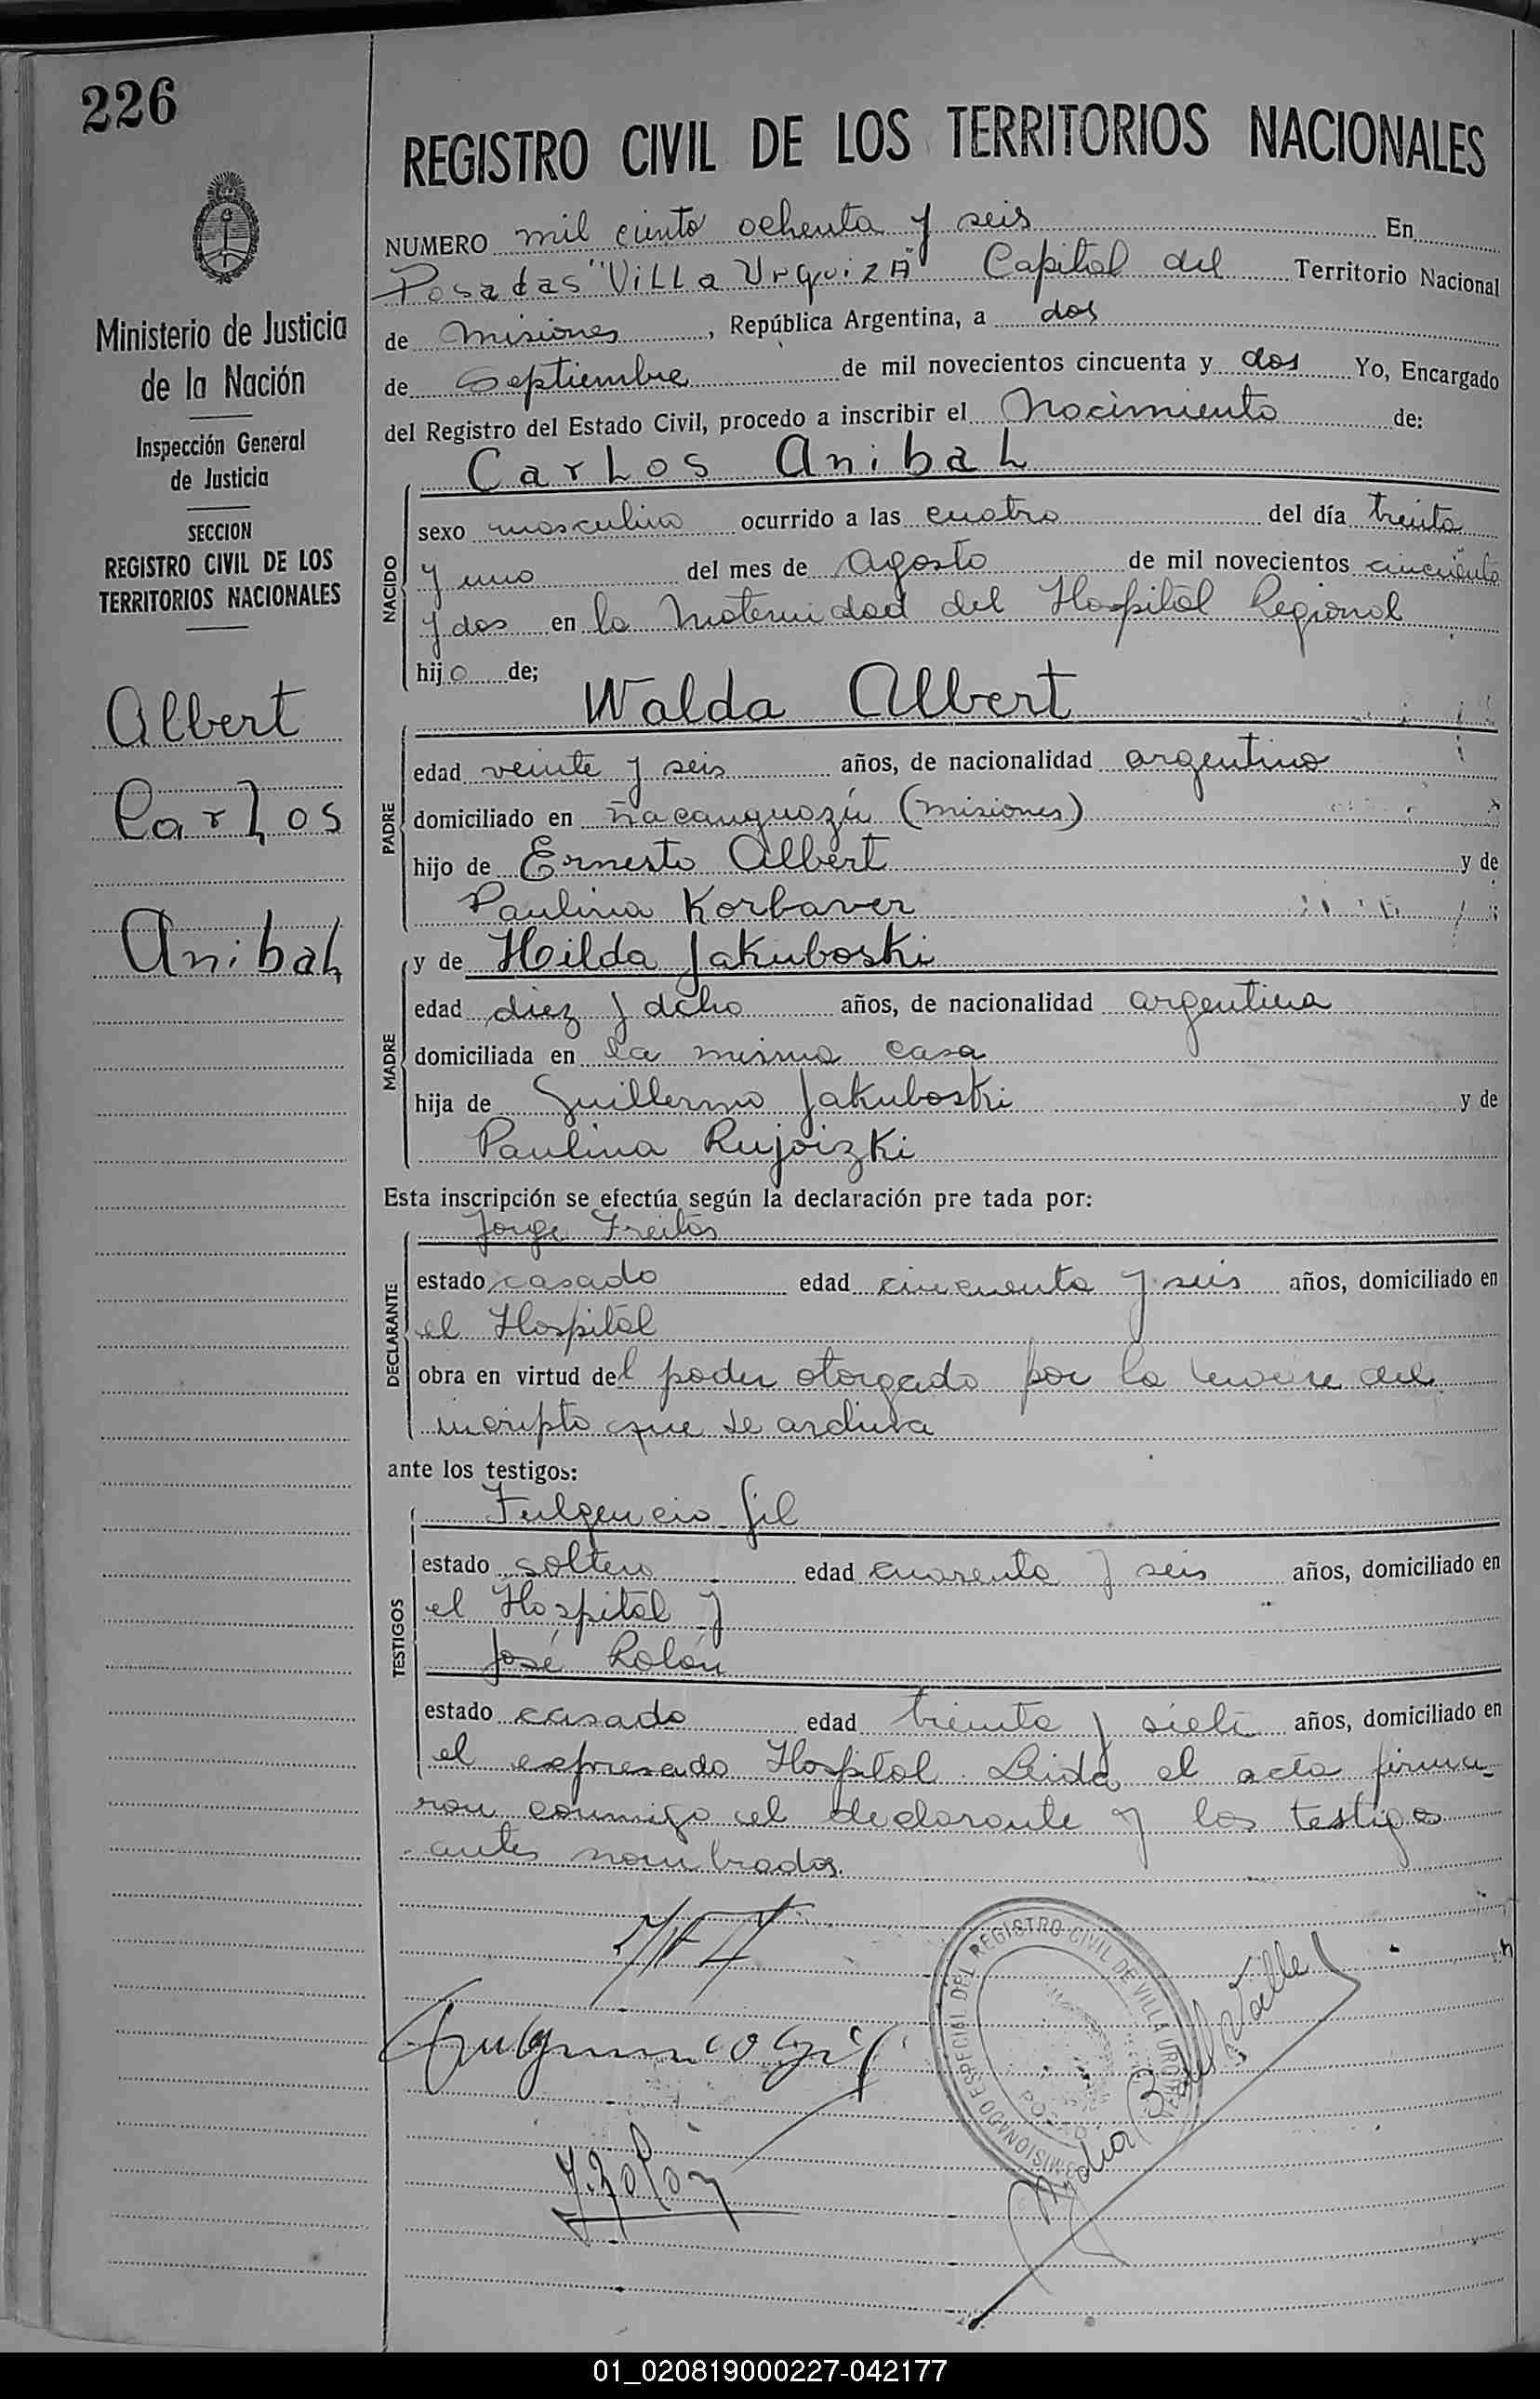 226
REGISTRO CIVIL DE LOS TERRITORIOS NACIONALES
NUMERO mil ciento ochenta y seis En
Posadas "Villa Urquiza" Capital del Territorio Nacional
de Misiones, República Argentina, a dos
de Septiembre de mil novecientos cincuenta y dos Yo, Encargado
del Registro del Estado Civil, procedo a inscribir el Nacimiento de:
Ministerio de Justicia
de la Nación
Inspección General
de Justicia
SECCION
REGISTRO CIVIL DE LOS
TERRITORIOS NACIONALES
Albert
Carlos
Anibal
NACIDO
Carlos Anibal
sexo masculino ocurrido a las cuatro del día treinta
y uno del mes de Agosto de mil novecientos cincuenta
y dos en la Maternidad del Hospital Regional
hijo de;
PADRE
Walda Albert
edad veinte y seis años, de nacionalidad argentino
domiciliado en Ñacanguazú (Misiones)
hijo de Ernesto Albert y de
Paulina Korbaver
MADRE
y de Hilda Jakuboski
edad diez y ocho años, de nacionalidad argentina
domiciliada en la misma casa
hija de Guillermo Jakuboski y de
Paulina Rujoizki
Esta inscripción se efectúa según la declaración pre tada por:
DECLARANTE
Jorge Freitas
estado casado edad cincuenta y seis años, domiciliado en
el Hospital
obra en virtud del poder otorgado por la del
incripto que se archiva
ante los testigos:
TESTIGOS
Fulgencio Gil
estado soltero edad cuarenta y seis años, domiciliado en
el Hospital y
José Rolón
estado casado edad treinta y siete años, domiciliado en
el expresado Hospital. Leida el acta firma-
ron conmigo el declarante y los testigos
antes nombrados.
Fulgencio Gil
J. Rolón
COMISIONADO ESPECIAL DEL REGISTRO CIVIL DE VILLA URQUIZA
B. del Valle
01_020819000227-042177